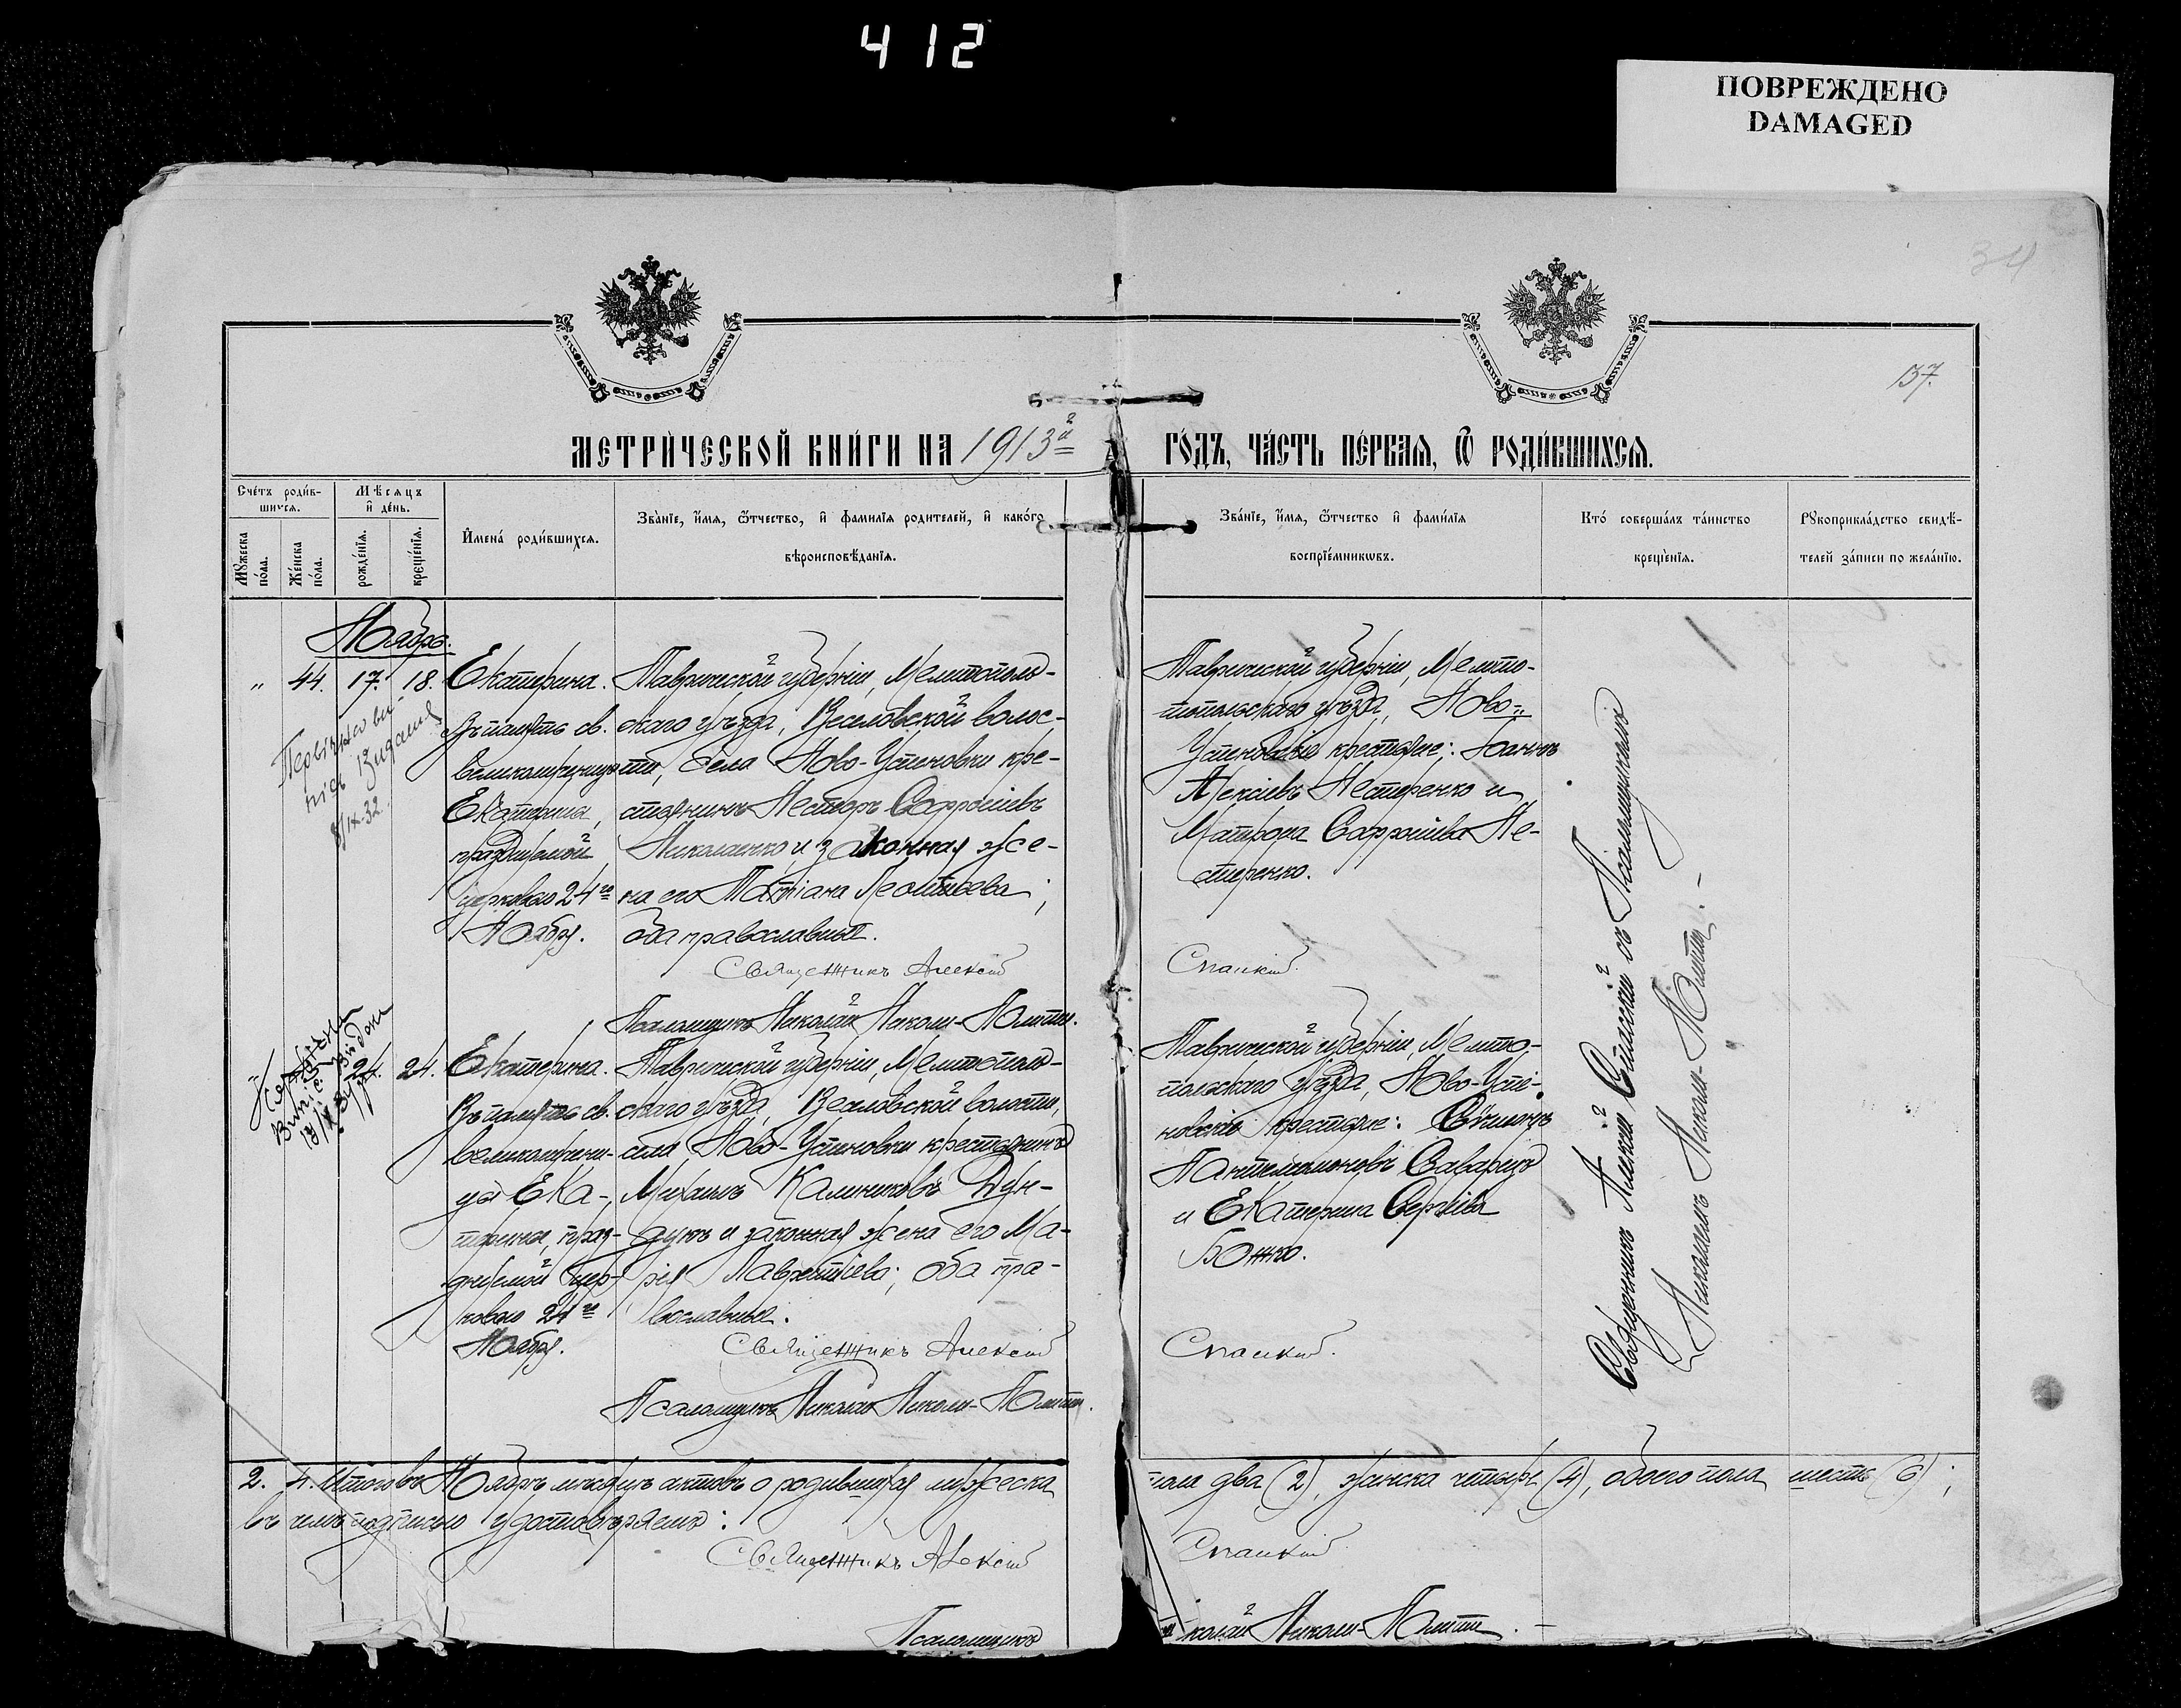 412
ПОВРЕЖДЕНО
DAMAGED
34
137.
МЕТРИ́ЧЕСКОЙ КНИ́ГИ НА 1913й
ГО́ДЪ, ЧА́СТЬ ПЕ́РВАЯ, Ѿ РОДИ́ВШИХСЯ.
Сче́тъ роди́в-
шихся.
Мѣсяцъ
и҆ де́нь.
Мꙋжеска
по́ла.
Же́нска
по́ла.
рожде́нїя.
креще́нїя.
И҆мена̀ роди́вшихся.
Зва́нїе, и҆́мя, ѻ҆́тчество, и҆ фами́лїя родителей, и҆ како́гѡ
вѣроисповѣ́данїя.
Зва́нїе, и҆́мя, ѻ҆́тчество и҆ фами́лїя
воспрїе́мникѡвъ.
Кто̀ соверша́лъ та́инство
креще́нїя.
Рꙋкоприкла́дство свидѣ́-
телей за́писи по жела́нїю.
Ноябрь.
„ 44. 17. 18.
Екатерина.
Въ память св.
великомученицы
Екатерины,
празднуемой
Церковью 24го
Ноября.
Таврической губерніи, Мелитополь-
скаго уѣзда, Веселовской волос-
ти, села Ново-Успеновки кре-
стьянинъ Несторъ Софроніевъ
Николаенко и законная же-
на его Татіана Леонтіева;
оба православные.
Священникъ Алексій
Псаломщикъ Николай Николи-
Таврической губерніи, Мелито-
польскаго уѣзда, Ново-
Успеновскіе крестьяне: Іоаннъ
Алексіевъ Нестеренко и
Матрона Софроніева Не-
стеренко.
Спасскій.
Первіснові
8/IX-32
24. 24.
Екатерина.
Въ память св.
великомучени-
цы Ека-
терины, праз-
днуемой Цер-
ковью 24го
Ноября.
Таврической губерніи, Мелитополь-
скаго уѣзда, Веселовской волости,
села Ново-Успеновки крестьянинъ
Михаилъ Калиниковъ
и законная жена его Ма-
рія Лаврентіева; оба пра-
вославные.
Священникъ Алексій
Псаломщикъ Николай Николи-
Таврической губерніи, Мелито-
польскаго уѣзда, Ново-Успе-
новскіе крестьяне:
Пантелеимоновъ
и Екатерина Сергіева
Божко.
Спасскій.
Священникъ Алексій Спасскій съ Псаломщикомъ
Николаемъ Николи-
2. 4. Итого въ Ноябрѣ мѣсяцѣ актовъ о родившихся мужеска
пола два (2), женска четыре (4), обоего пола шесть (6);
въ чемъ подписью удостовѣряемъ:
Священникъ Алексій
Спасскій
Псаломщикъ
Николай Николи-